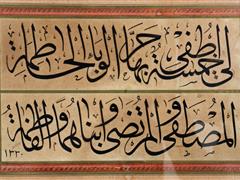 لي خمسة أطفي بها حر الوبا الحاطمة
المصطفى والمرتضى وابناهما والفاطمة
١٣٣٠